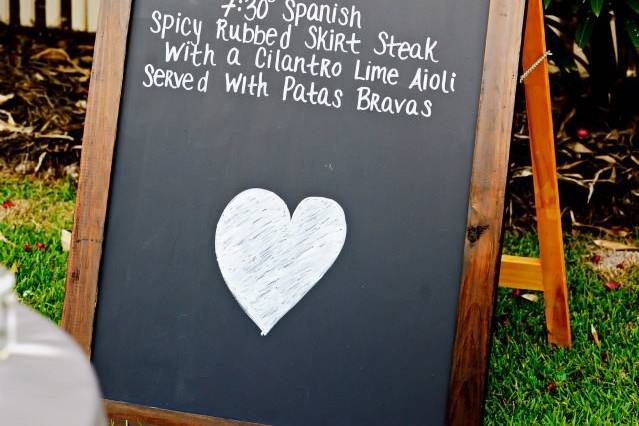 7:30 Spanish
Spicy Rubbed Skirt Steak
With a Cilantro Lime Aioli
Served With Patas Bravas